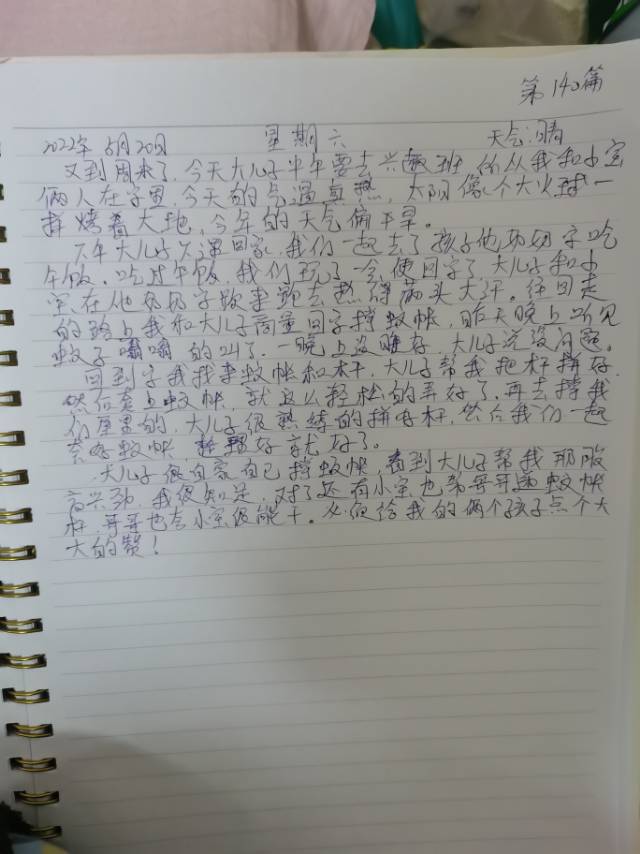 第140篇
2022年 8月20日 星期六 天气:晴
又到周末了,今天大儿子半午要去兴趣班,所以我和小宝
俩人在家里,今天的气温真热,太阳像个大火球一
样烤着大地,今年的天气偏干旱。
下午大儿子下课回家,我们一起去了孩子他奶奶家吃
午饭,吃过午饭,我们玩了一会便回家了,大儿子和小
宝在他奶奶家跑来跑去热得满头大汗。往回走
的路上我和大儿子商量回家撑蚊帐,昨天晚上听见
蚊子嗡嗡的叫了,一晚上没睡好,大儿子说没问题。
回到家我找来蚊帐和杆,大儿子帮我把杆拼好,
然后套上蚊帐,就这么轻松的弄好了,再去撑我
们屋里的,大儿子很熟练的拼好杆,然后我们一起
套好蚊帐,好就好了。
大儿子很自豪自己撑蚊帐,看到大儿子帮我那股
高兴劲,我很知足,对了还有小宝也帮哥哥递蚊帐
杆,哥哥也夸小宝很能干。必须给我的俩个孩子点个大
大的赞!